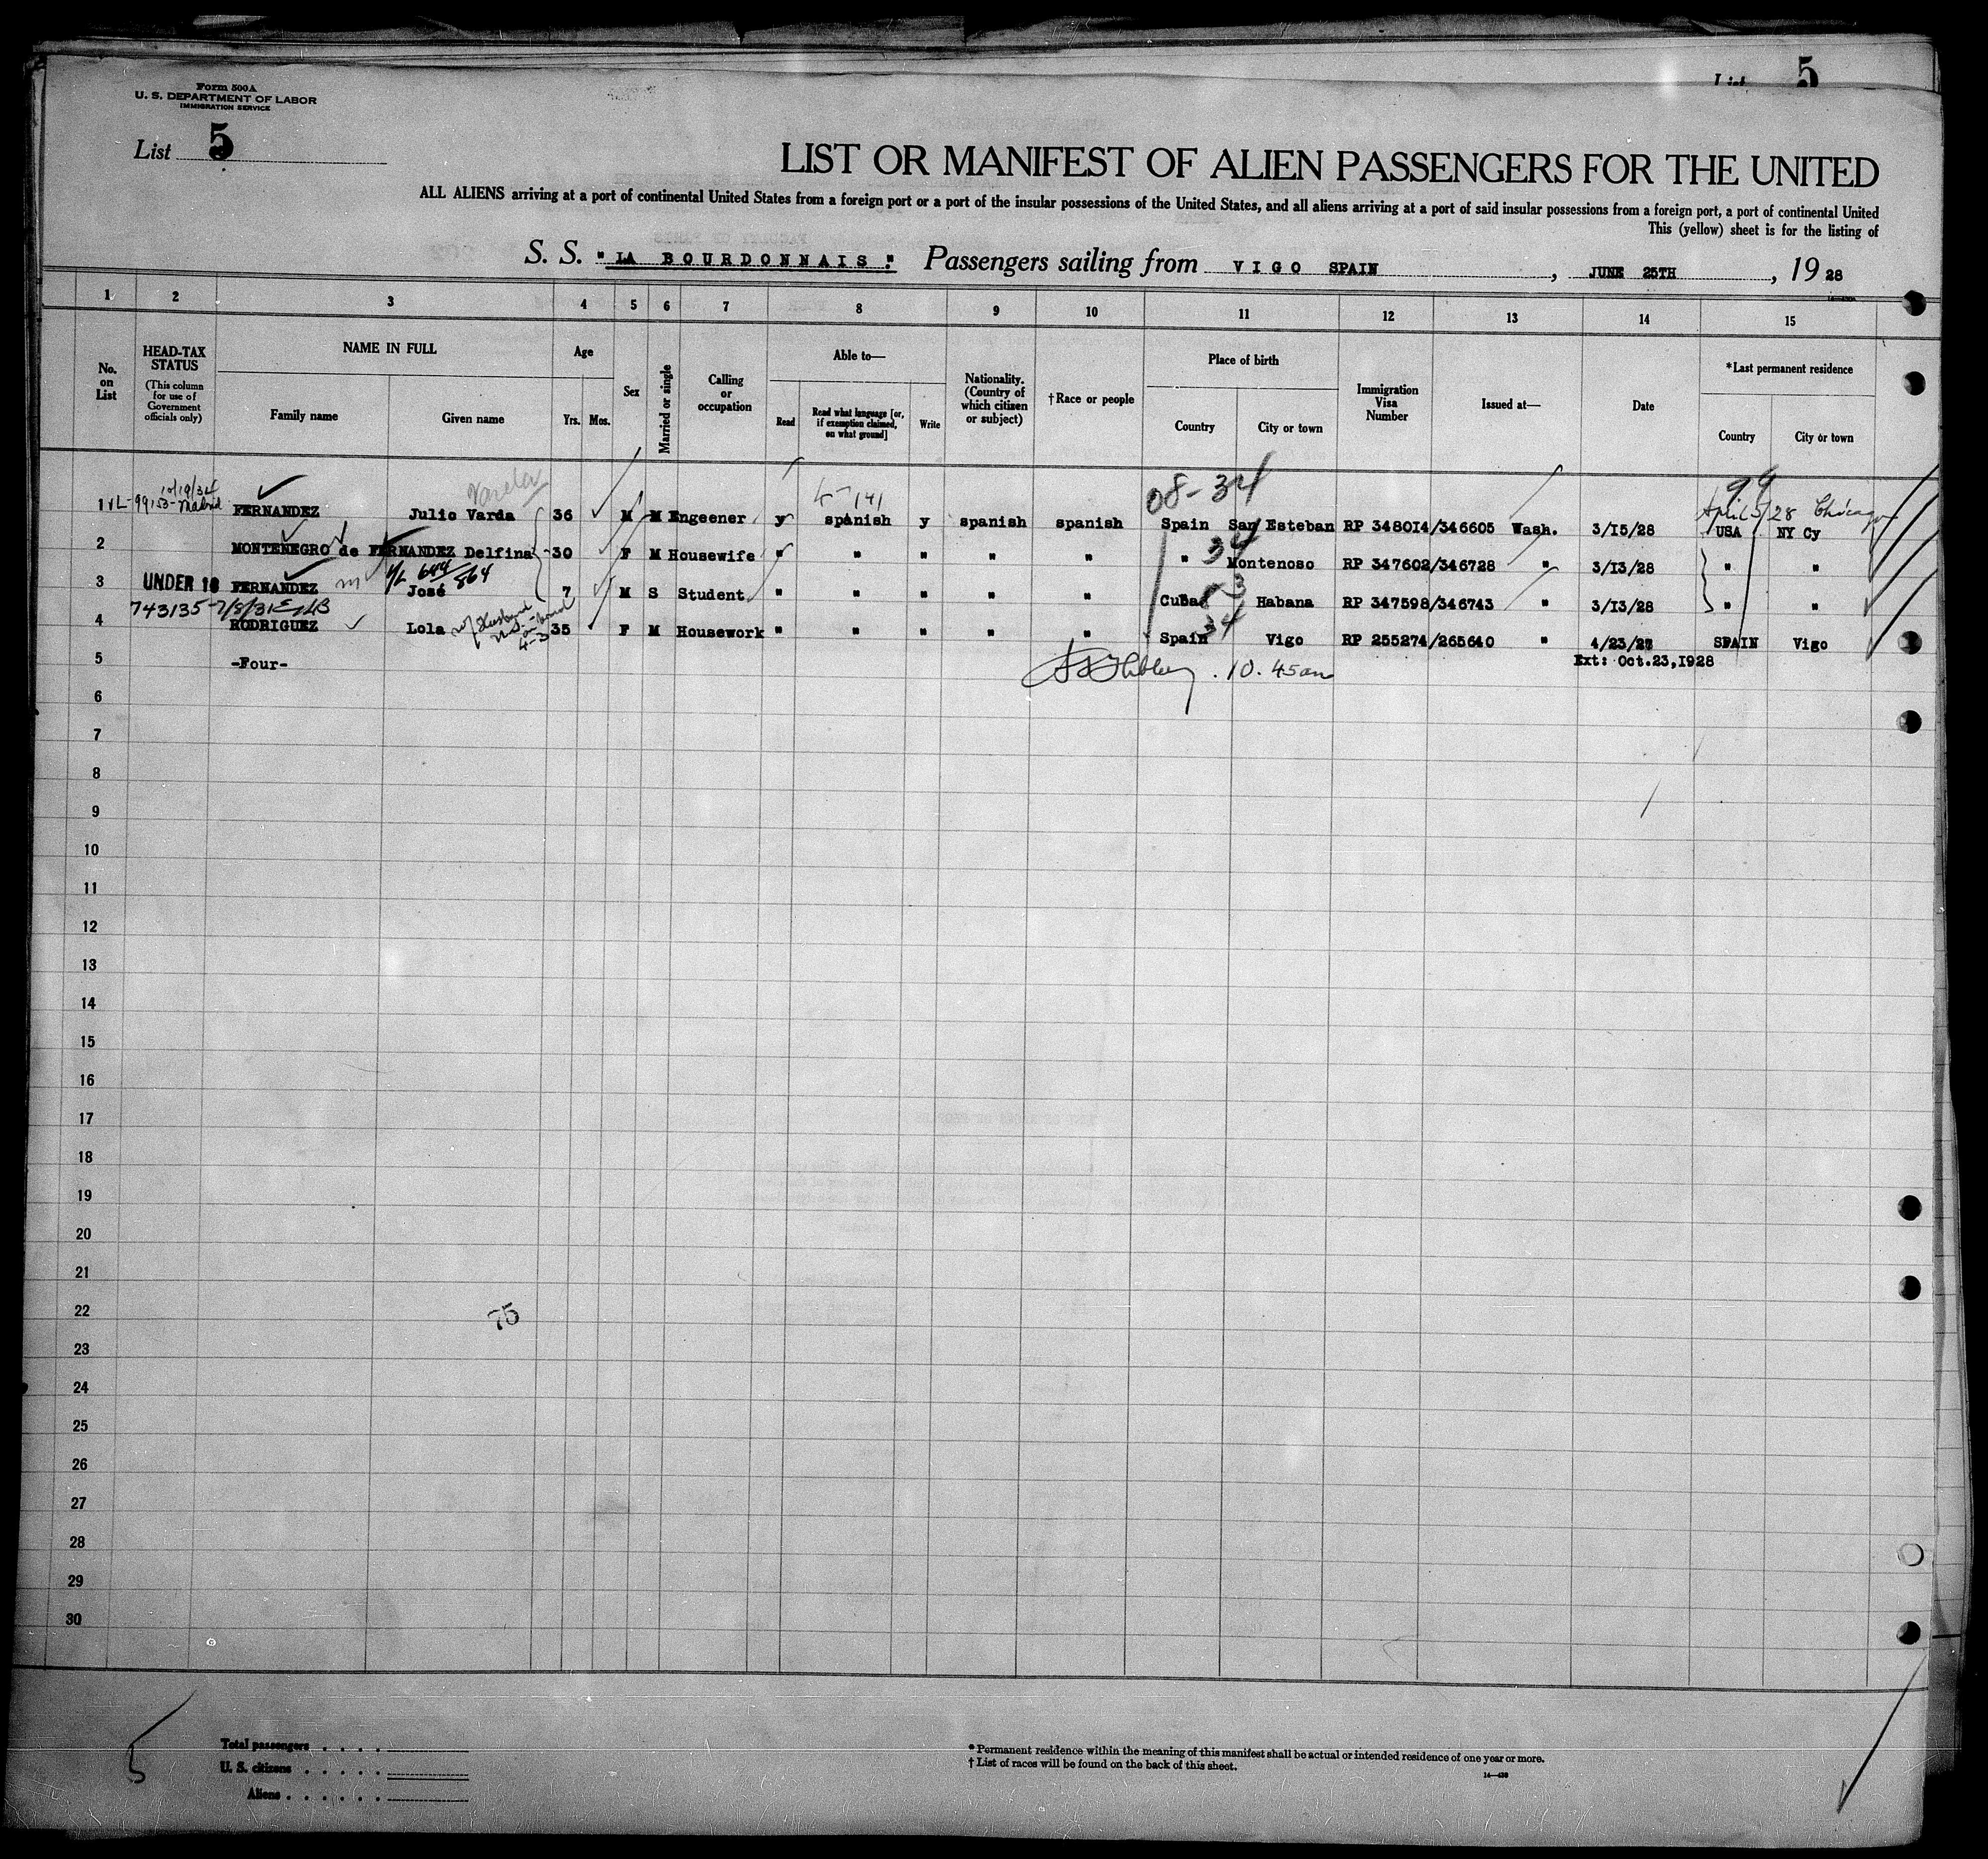 List 5
Form 500A
U. S. DEPARTMENT OF LABOR
IMMIGRATION SERVICE
List 5
LIST OR MANIFEST OF ALIEN PASSENGERS FOR THE UNITED
ALL ALIENS arriving at a port of continental United States from a foreign port or a port of the insular possessions of the United States, and all aliens arriving at a port of said insular possessions from a foreign port, a port of continental United
This (yellow) sheet is for the listing of
S. S. "LA BOURDONNAIS." Passengers sailing from VIGO SPAIN, JUNE 25TH, 1928
1 2 3 4 5 6 7 8 9 10 11 12 13 14 15
No. on List
HEAD-TAX STATUS
(This column for use of Government officials only)
NAME IN FULL
Family name
Given name
Age
Yrs.
Mos.
Sex
Married or single
Calling or occupation
Able to—
Read
Read what language [or, if exemption claimed, on what ground]
Write
Nationality. (Country of which citizen or subject)
†Race or people
Place of birth
Country
City or town
Immigration Visa Number
Issued at—
Date
*Last permanent residence
Country
City or town
10/19/34 Varela 4-141 08-34 99
99153-Madrid April 5/28 Chicago
1 FERNANDEZ Julio Varda 36 M M Engeener y spanish y spanish spanish Spain San Esteban RP 348014/346605 Wash. 3/15/28 USA NY Cy
2 MONTENEGRO de FERNANDEZ Delfina 30 F M Housewife " " " " " " 34 Montenoso RP 347602/346728 " 3/13/28 " "
V/L 644/864
3 UNDER 16 FERNANDEZ José 7 M S Student " " " " " Cuba Habana RP 347598/346743 " 3/13/28 " "
743135-7/8/31
4 RODRIGUEZ Lola 35 F M Housework " " " " " Spain 34 Vigo RP 255274/265640 " 4/23/27 SPAIN Vigo
w/ Husband
4-3
5 -Four- Ext: Oct.23,1928
10.45am
6
7
8
9
10
11
12
13
14
15
16
17
18
19
20
21
22
75
23
24
25
26
27
28
29
30
5
Total passengers . . . .
U. S. citizens . . . . .
Aliens . . . . . .
* Permanent residence within the meaning of this manifest shall be actual or intended residence of one year or more.
† List of races will be found on the back of this sheet.
14—430